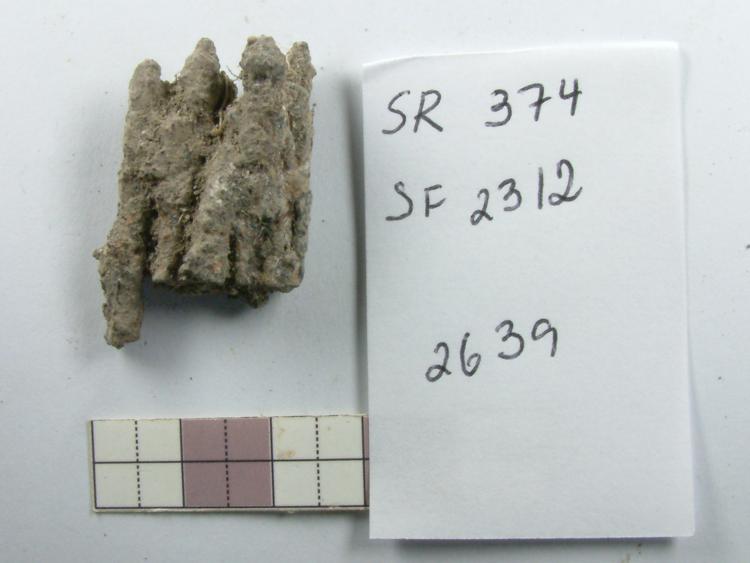 SR 374
SF 2312
2639